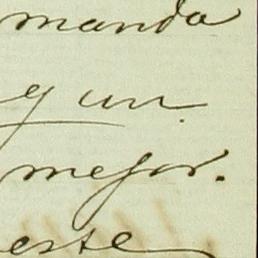 manda
y un
mejor.
este